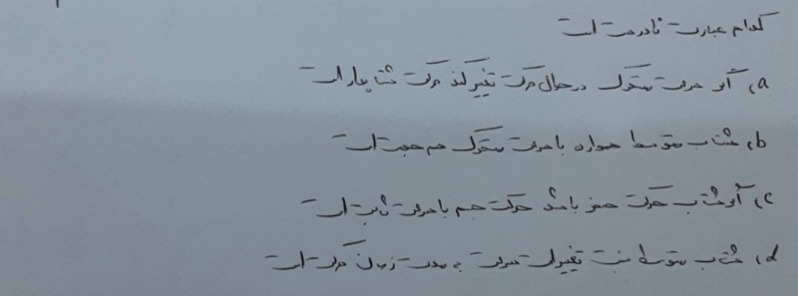 کدام عبارت نادرست است
a) اگر سرعت متحرک در حال حرکت تغییر کند حرکت شتابدار است
b) شتاب متوسط همواره با سرعت متحرک هم جهت است
c) اگر شتاب حرکت صفر باشد حرکت جسم با سرعت ثابت است
d) شتاب متوسط نسبت تغییرات سرعت به مدت زمان حرکت است